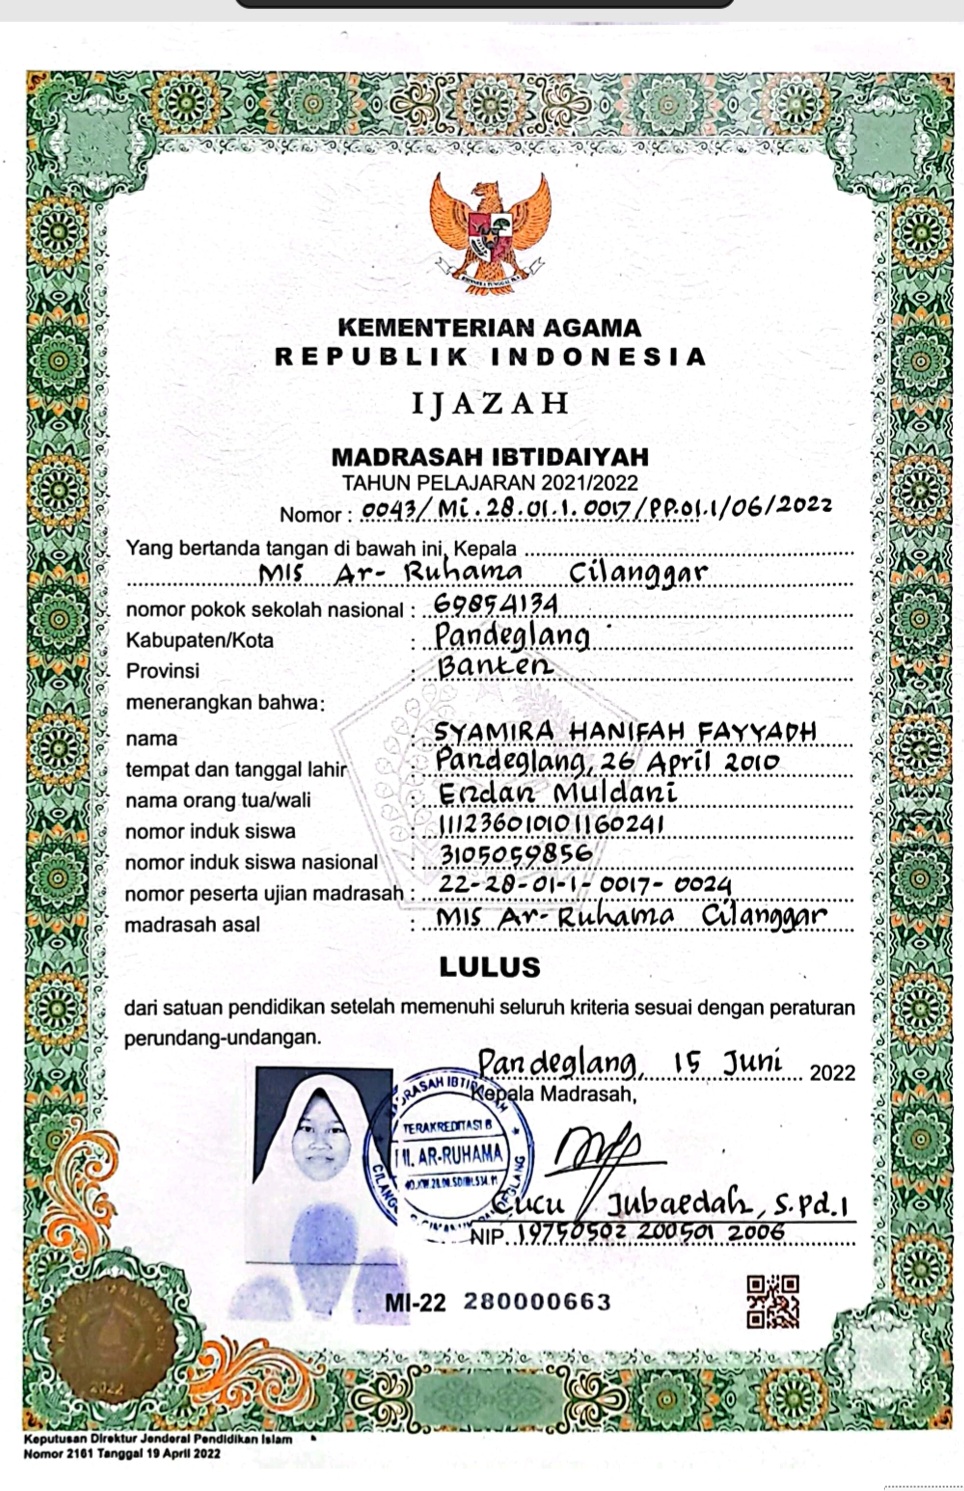 KEMENTERIAN AGAMA
REPUBLIK INDONESIA
IJAZAH
MADRASAH IBTIDAIYAH
TAHUN PELAJARAN 2021/2022
Nomor : 0043/Mi.28.01.1.0017/PP.01.1/06/2022
Yang bertanda tangan di bawah ini, Kepala
MIS Ar-Ruhama Cilanggar
nomor pokok sekolah nasional : 69854134
Kabupaten/Kota : Pandeglang
Provinsi : Banten
menerangkan bahwa:
nama : SYAMIRA HANIFAH FAYYADH
tempat dan tanggal lahir : Pandeglang, 26 April 2010
nama orang tua/wali : Endan Muldani
nomor induk siswa : 111236010101160241
nomor induk siswa nasional : 3105059856
nomor peserta ujian madrasah : 22-28-01-1-0017-0024
madrasah asal : MIS Ar-Ruhama Cilanggar
LULUS
dari satuan pendidikan setelah memenuhi seluruh kriteria sesuai dengan peraturan
perundang-undangan.
Pandeglang, 15 Juni 2022
Kepala Madrasah,
MADRASAH IBTIDAIYAH
TERAKREDITASI B
MI. AR-RUHAMA
Cucu Jubaedah, S.Pd.I
NIP. 19750502 200501 2006
MI-22 280000663
2022
Keputusan Direktur Jenderal Pendidikan Islam
Nomor 2161 Tanggal 19 April 2022